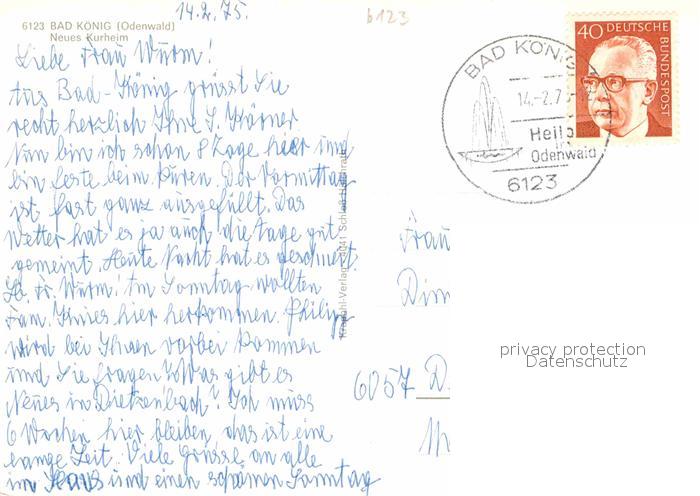 14.2.75.
b123
6123 BAD KÖNIG (Odenwald)
Neues Kurheim
Liebe Frau Wurm!
Aus Bad-König grüsst Sie
recht herzlich Ihre S. Körner
Nun bin ich schon 8 Tage hier und
bin feste beim Kuren. Der Vormittag
ist fast ganz ausgefüllt. Das
Wetter hat es ja auch die Tage gut
gemeint. Heute Nacht hat es geschneit.
Lb. Fr. Wurm! Am Sonntag wollten
Fam. hier herkommen. Philipp
wird bei Ihnen vorbei kommen
und Sie fragen. Was gibt es
Neues in Dietzenbach? Ich muss
6 Wochen hier bleiben das ist eine
lange Zeit. Viele Grüsse an alle
im Haus und einen schönen Sonntag
Krapohl-Verlag 4041 Schloß
40 DEUTSCHE
BUNDESPOST
BAD KÖNIG
14.-2.7
Heilb
Odenwald
6123
Frau
6057 D.
privacy protection
Datenschutz